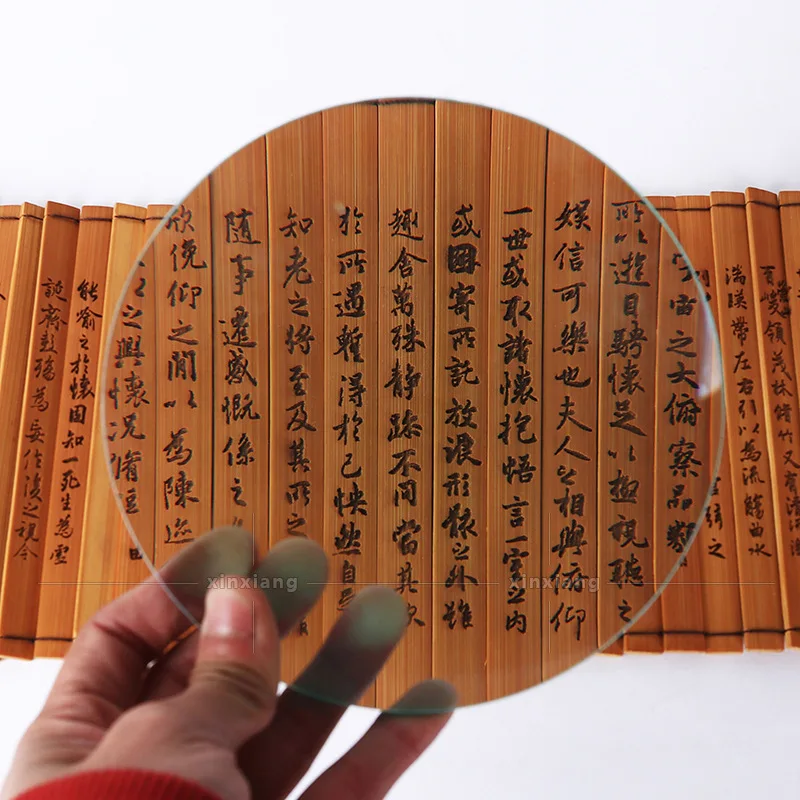 峻領茂林脩竹又有清流激
湍暎帶左右引以為流觴曲水
弦之
宙之大俯察品類
所以遊目騁懷足以極視聽之
娛信可樂也夫人之相與俯仰
一世或取諸懷抱悟言一室之內
或因寄所託放浪形骸之外雖
趣舍萬殊靜躁不同當其欣
於所遇暫得於己怏然自
知老之將至及其所之
隨事遷感慨係之
欣俛仰之閒以為陳迹
之興懷況脩短
能喻之於懷固知一死生為虛
誕齊彭殤為妄作後之視今
xinxiang
xinxiang